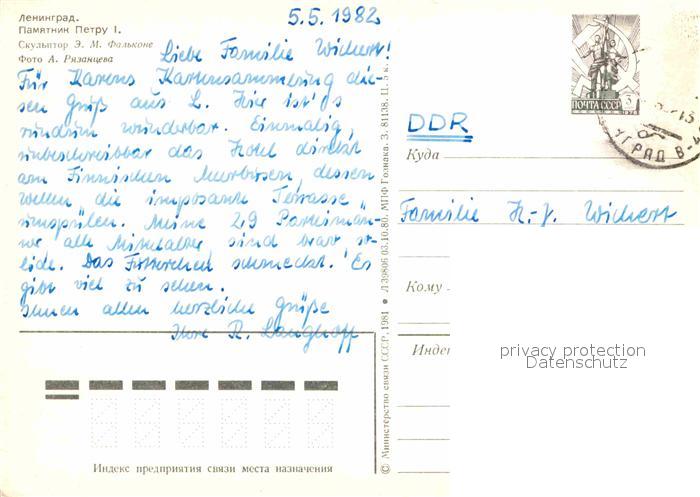 Ленинград.
Памятник Петру I.
Скульптор Э. М. Фальконе
Фото А. Рязанцева
5.5.1982
Liebe Familie Wichert!
Für Karens Kartensammlung die-
sen Gruß aus L. Hier ist's
rundum wunderbar. Einmalig,
unbeschreibbar das Hotel direkt
am Finnischen Meerbusen, dessen
Wellen die imposante Terrasse
umspülen. Meine 29
alle sind
Das schmeckt. Es
gibt viel zu sehen.
Ihnen allen herzliche Grüße
Ihre R. Langhoff
Индекс предприятия связи места назначения
© Министерство связи СССР, 1981 ● Л 39806 03.10.80. МПФ Гознака. З. 81138. Ц. 5 к.
ПОЧТА СССР
DDR
Куда
Familie H.-J. Wichert
Кому
Индек
privacy protection
Datenschutz